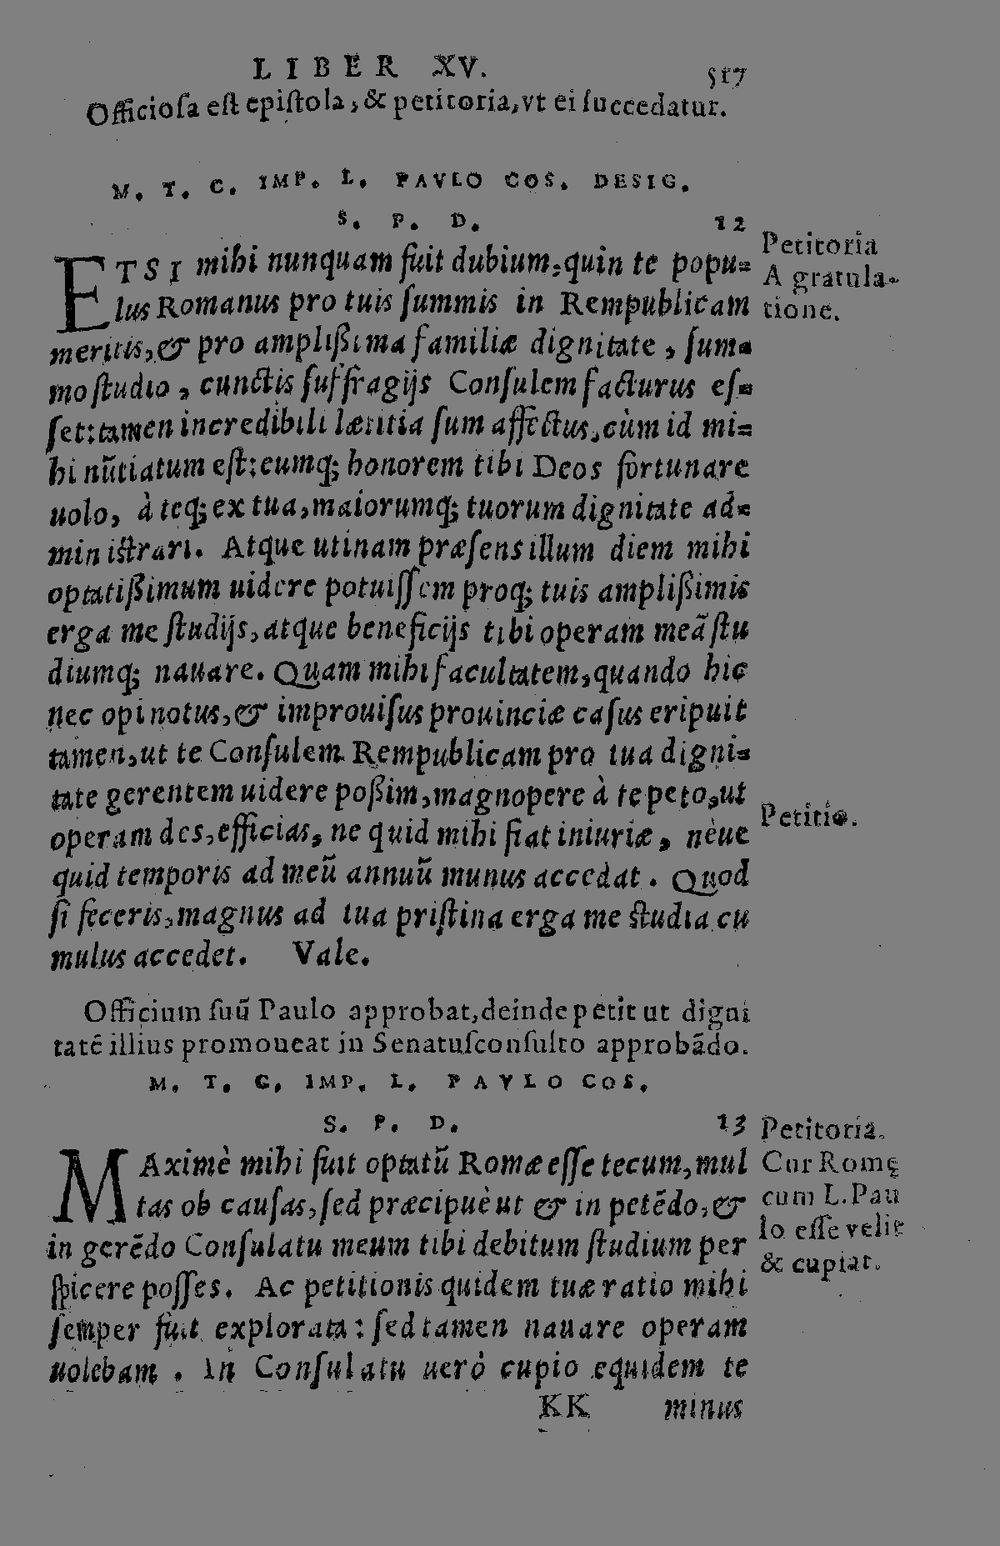 LIBER XV. 517
Officiosa est epistola, & petitoria, vt ei succedatur.
M. T. C. IMP. L. PAVLO COS. DESIG.
S. P. D. 12
Petitoria
A gratula-
tione.
ETSI mihi nunquam fuit dubium, quin te popu-
lus Romanus pro tuis summis in Rempublicam
meritis, & pro amplißima familiæ dignitate, sum-
mo studio, cunctis suffragijs Consulem facturus es-
set: tamen incredibili lætitia sum affectus, cùm id mi-
hi nũtiatum est: eumq; honorem tibi Deos fortunare
uolo, à teq; ex tua, maiorumq; tuorum dignitate ad-
ministrari. Atque utinam præsens illum diem mihi
optatißimum uidere potuissem proq; tuis amplißimis
erga me studijs, atque beneficijs tibi operam meã stu
diumq; nauare. Quam mihi facultatem, quando hic
nec opinotus, & improuisus prouinciæ casus eripuit
tamen, ut te Consulem Rempublicam pro tua digni-
tate gerentem uidere poßim, magnopere à te peto, ut
Petitio.
operam des, efficias, ne quid mihi fiat iniuriæ, nèue
quid temporis ad meũ annuũ munus accedat. Quod
si feceris, magnus ad tua pristina erga me studia cu
mulus accedet. Vale.
Officium suũ Paulo approbat, deinde petit ut digni
tatẽ illius promoueat in Senatusconsulto approbãdo.
M. T. C. IMP. L. PAVLO COS.
S. P. D. 13
Petitoria.
Cur Romę
cum L. Pau
lo esse velit
& cupiat.
MAximè mihi fuit optatũ Romæ esse tecum, mul
tas ob causas, sed præcipuè ut & in petẽdo, &
in gerẽdo Consulatu meum tibi debitum studium per
spicere posses. Ac petitionis quidem tuæ ratio mihi
semper fuit explorata: sed tamen nauare operam
uolebam. In Consulatu uerò cupio equidem te
KK minus